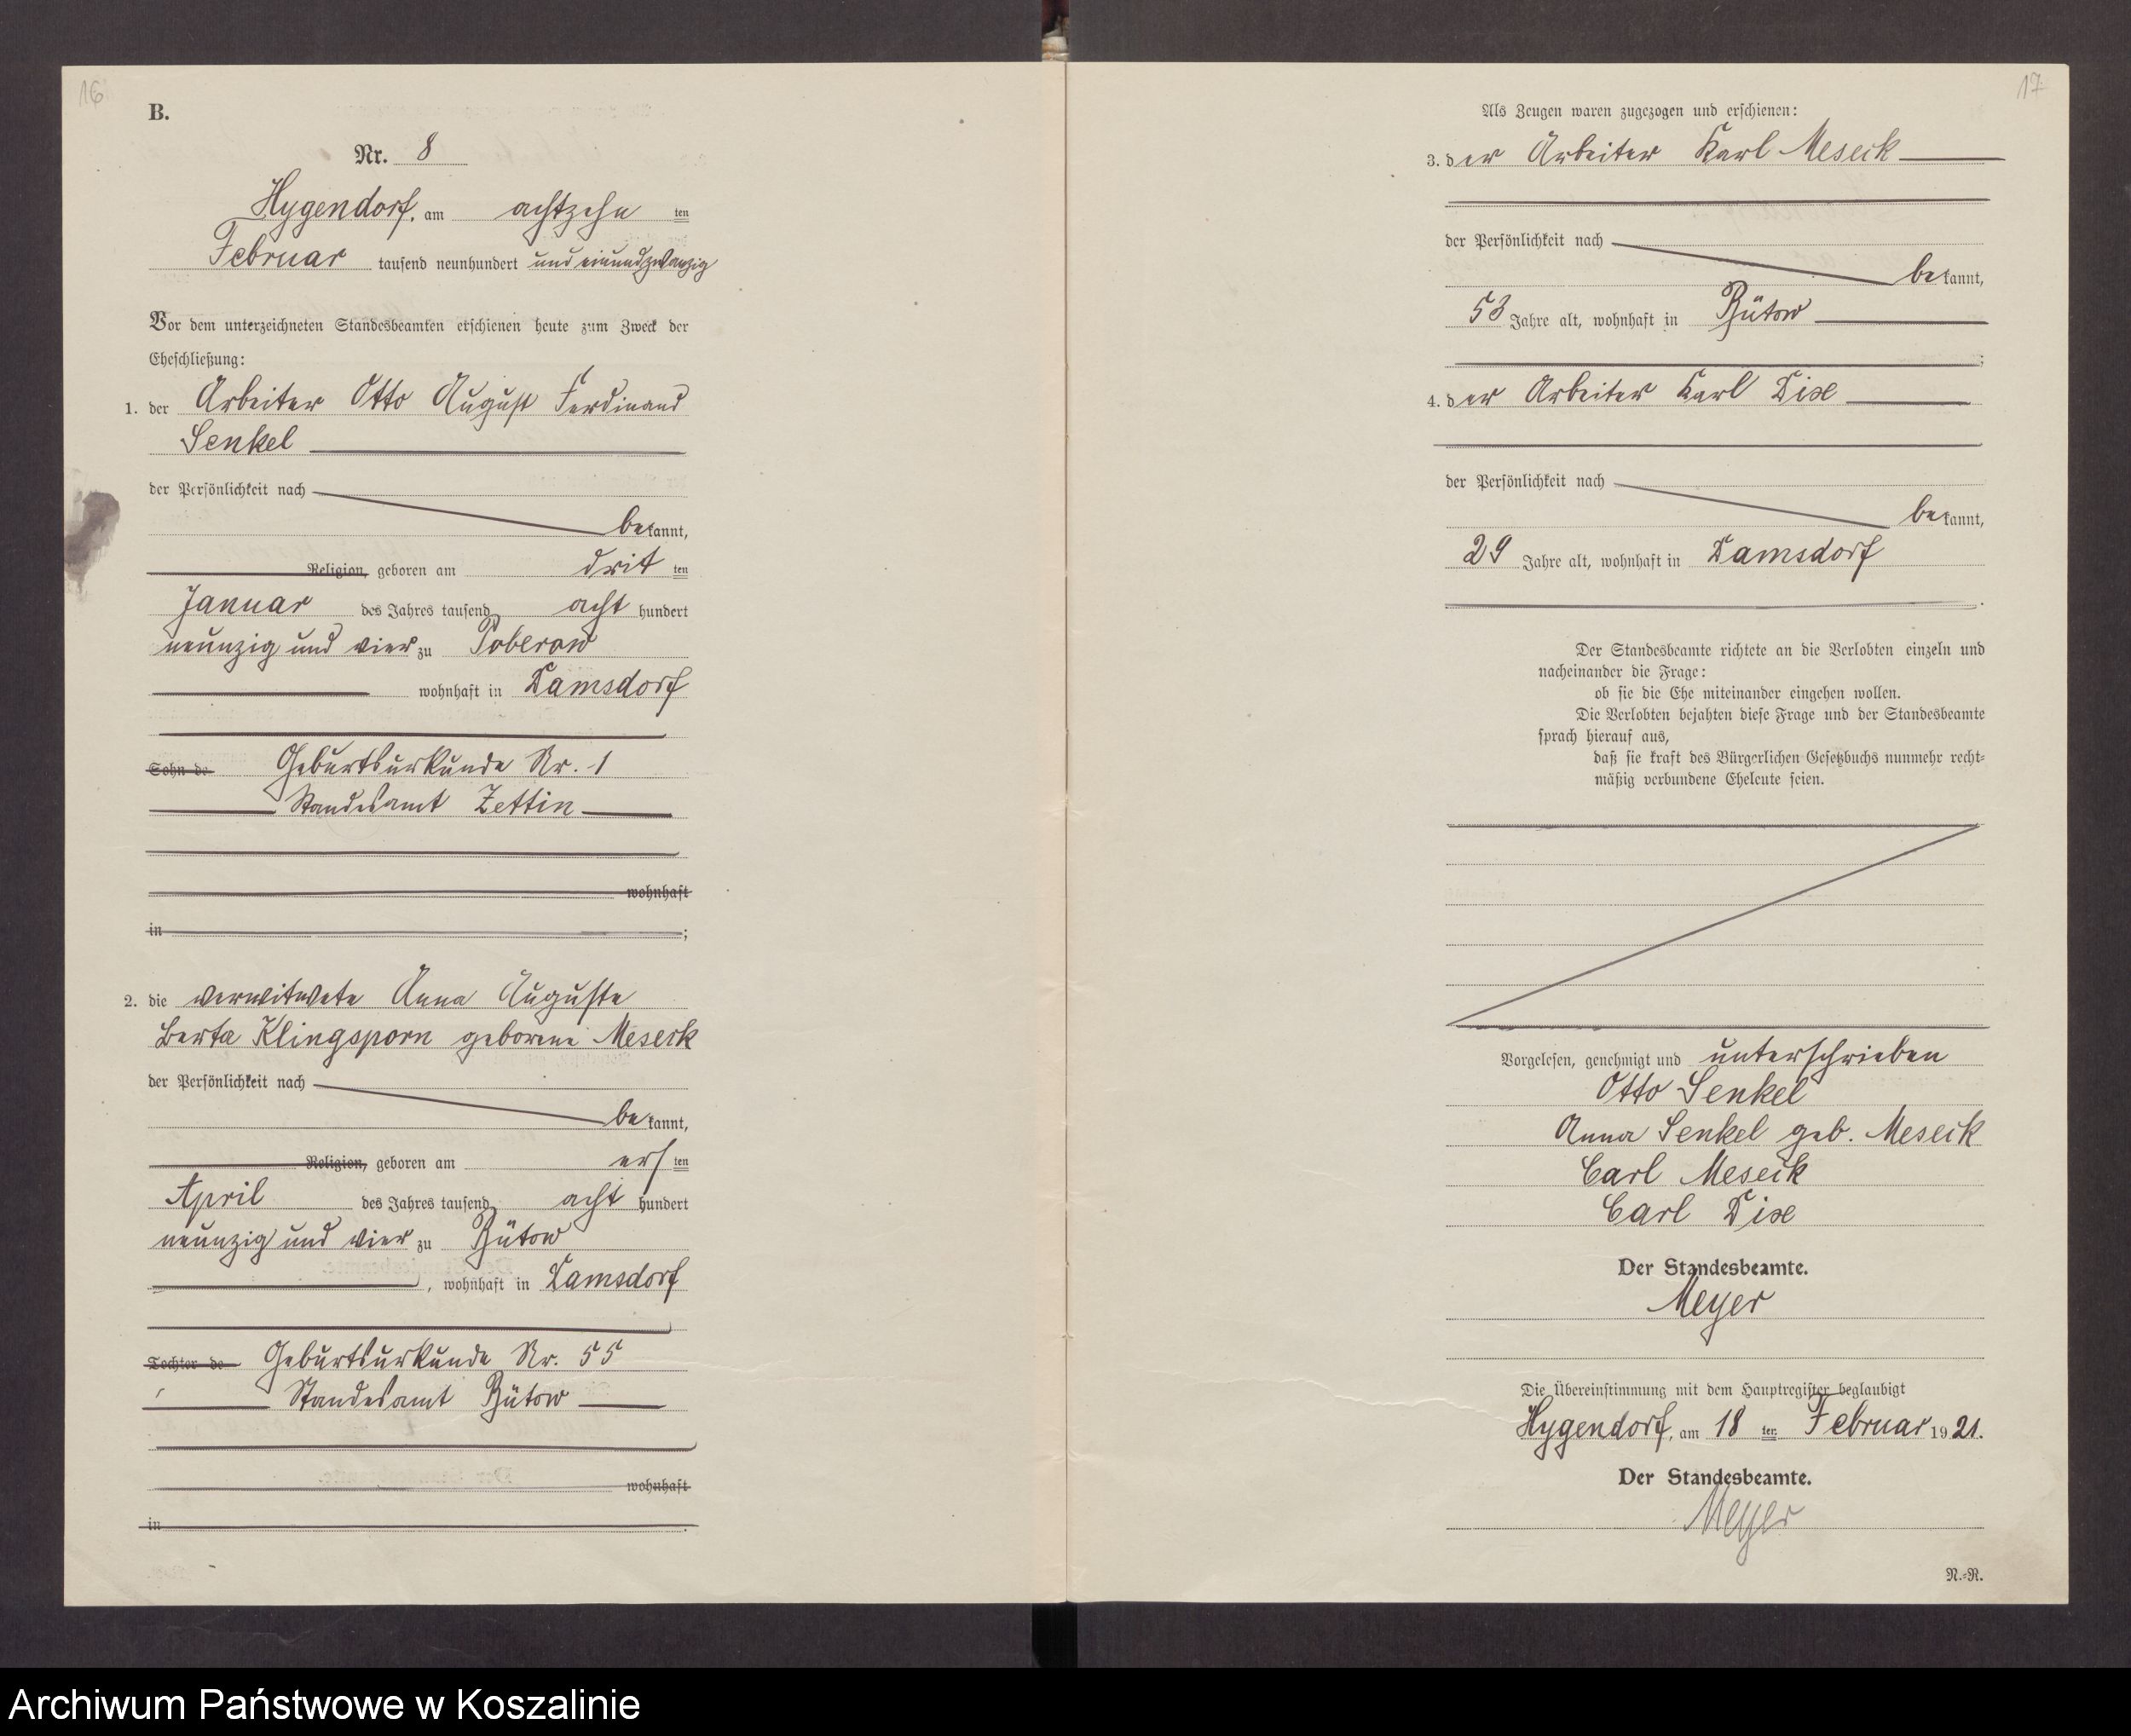 16
B.
Nr. 8
Hygendorf, am achtzehn ten
Februar tausend neunhundert und einundzwanzig
Vor dem unterzeichneten Standesbeamten erschienen heute zum Zweck der
Eheschließung:
1. der Arbeiter Otto August Ferdinand
Senkel
der Persönlichkeit nach
be kannt,
Religion, geboren am drit ten
Januar des Jahres tausend acht hundert
neunzig und vier zu Poberow
wohnhaft in Damsdorf
Sohn de Geburtsurkunde Nr. 1
Standesamt Zettin
wohnhaft
in ;
2. die verwitwete Anna Auguste
Berta Klingsporn geborene Meseck
der Persönlichkeit nach
be kannt,
Religion, geboren am ers ten
April des Jahres tausend acht hundert
neunzig und vier zu Bütow
, wohnhaft in Damsdorf
Tochter de Geburtsurkunde Nr. 55
Standesamt Bütow
wohnhaft
in .
17
Als Zeugen waren zugezogen und erschienen:
3. der Arbeiter Karl Meseck
der Persönlichkeit nach
be kannt,
53 Jahre alt, wohnhaft in Bütow
;
4. der Arbeiter Karl Dixe
der Persönlichkeit nach
be kannt,
29 Jahre alt, wohnhaft in Damsdorf
.
Der Standesbeamte richtete an die Verlobten einzeln und
nacheinander die Frage:
ob sie die Ehe miteinander eingehen wollen.
Die Verlobten bejahten diese Frage und der Standesbeamte
sprach hierauf aus,
daß sie kraft des Bürgerlichen Gesetzbuchs nunmehr recht-
mäßig verbundene Eheleute seien.
Vorgelesen, genehmigt und unterschrieben
Otto Senkel
Anna Senkel geb. Meseck
Carl Meseck
Carl Dixe
Der Standesbeamte.
Meyer
Die Übereinstimmung mit dem Hauptregister beglaubigt
Hygendorf, am 18 ten Februar 1921.
Der Standesbeamte.
Meyer
N.-R.
Archiwum Państwowe w Koszalinie